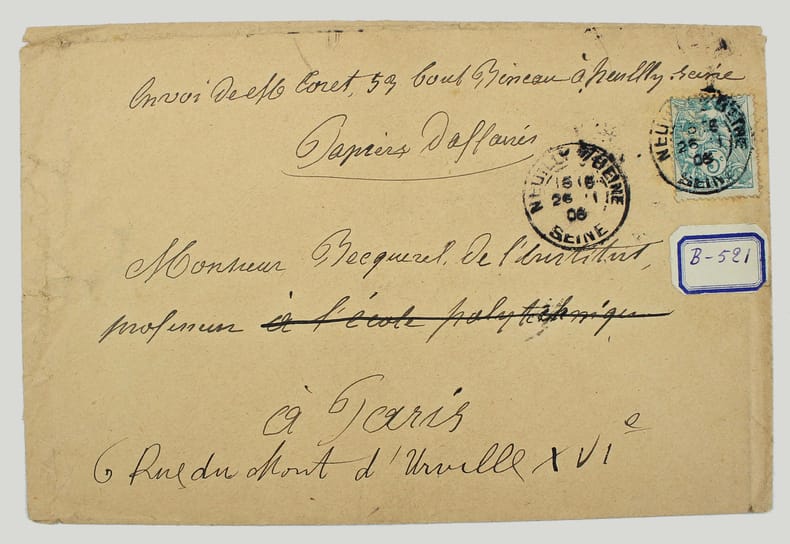 Envoi de M Coret, 53 boul Bineau à Neuilly Seine
Papiers D'affaires
NEUILLY S/ SEINE
26 1
06
SEINE
NEUILLY S/ SEINE
26 1
06
SEINE
B-521
Monsieur Becquerel de l'Institut,
professeur à l'école polytechnique
à Paris
6 Rue du Mont d'Urville XVIe